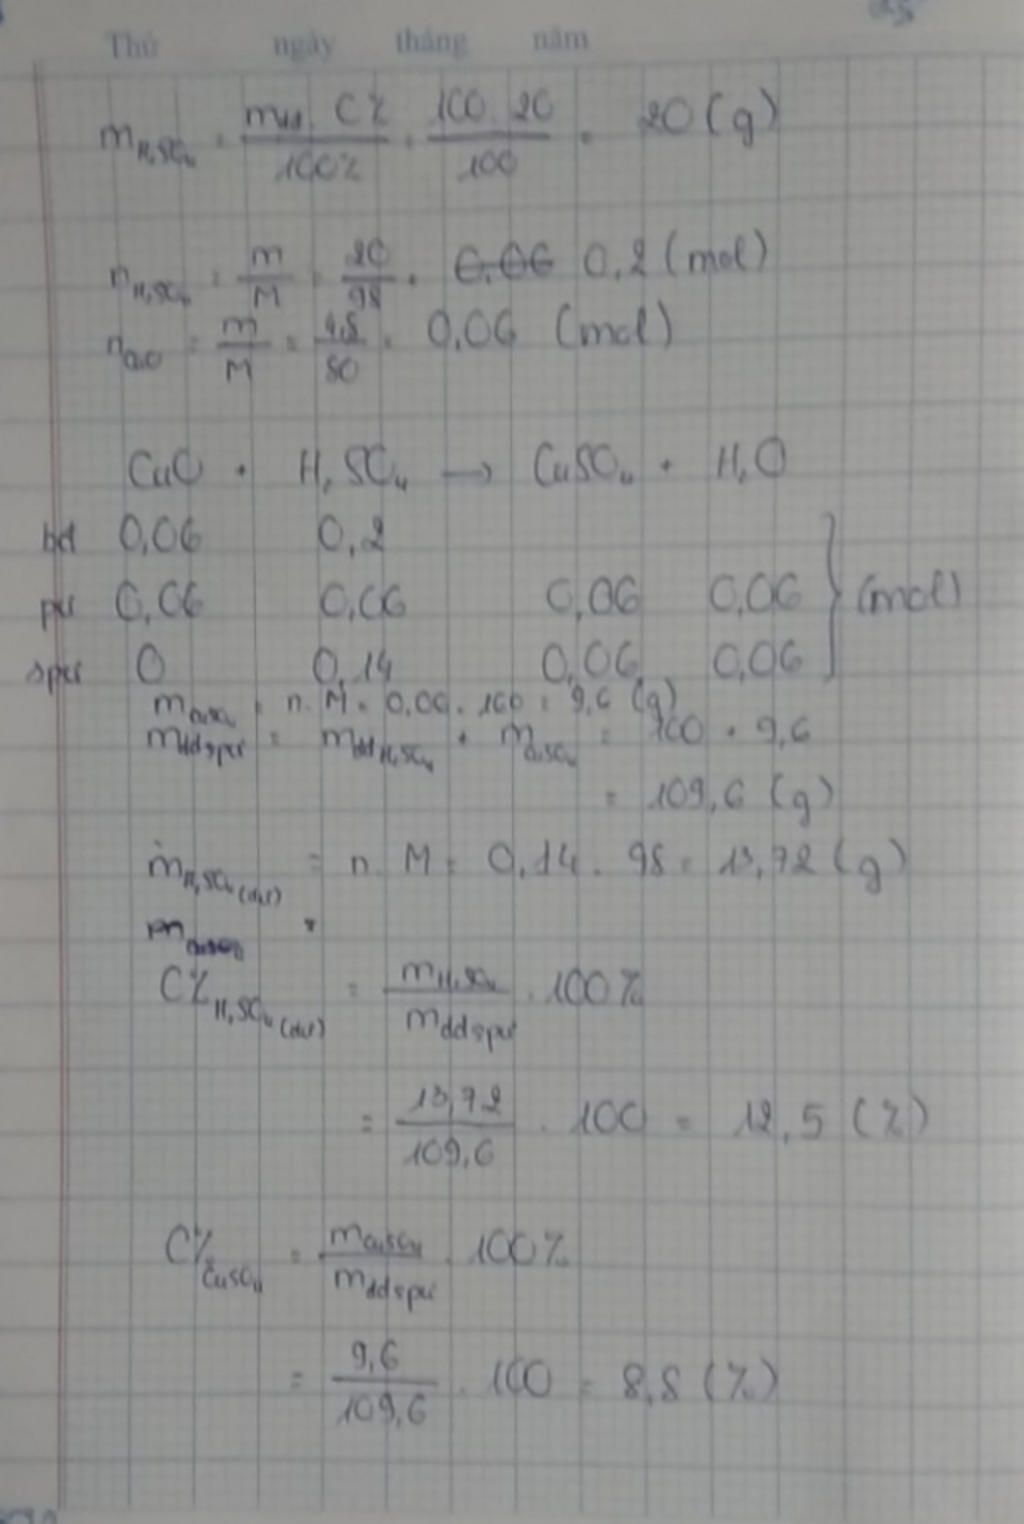 Thứ ngày tháng năm
m H₂SO₄ = mdd. C% / 100% = 100. 20 / 100 = 20 (g)
n H₂SO₄ = m / M = 20 / 98 = 0,06 0,2 (mol)
n CuO = m / M = 4,8 / 80 = 0,06 (mol)
CuO + H₂SO₄ → CuSO₄ + H₂O
bđ 0,06 0,2
pư 0,06 0,06 0,06 0,06 (mol)
spư 0 0,14 0,06 0,06
m CuSO₄ = n. M = 0,06. 160 = 9,6 (g)
m ddspư = m ddH₂SO₄ + m CuSO₄ = 100 + 9,6
= 109,6 (g)
m H₂SO₄(dư) = n. M = 0,14. 98 = 13,72 (g)
m CuSO₄ =
C% H₂SO₄(dư) = m H₂SO₄ / m ddspư . 100%
= 13,72 / 109,6 . 100 = 12,5 (%)
C% CuSO₄ = m CuSO₄ / m ddspư . 100%
= 9,6 / 109,6 . 100 = 8,8 (%)